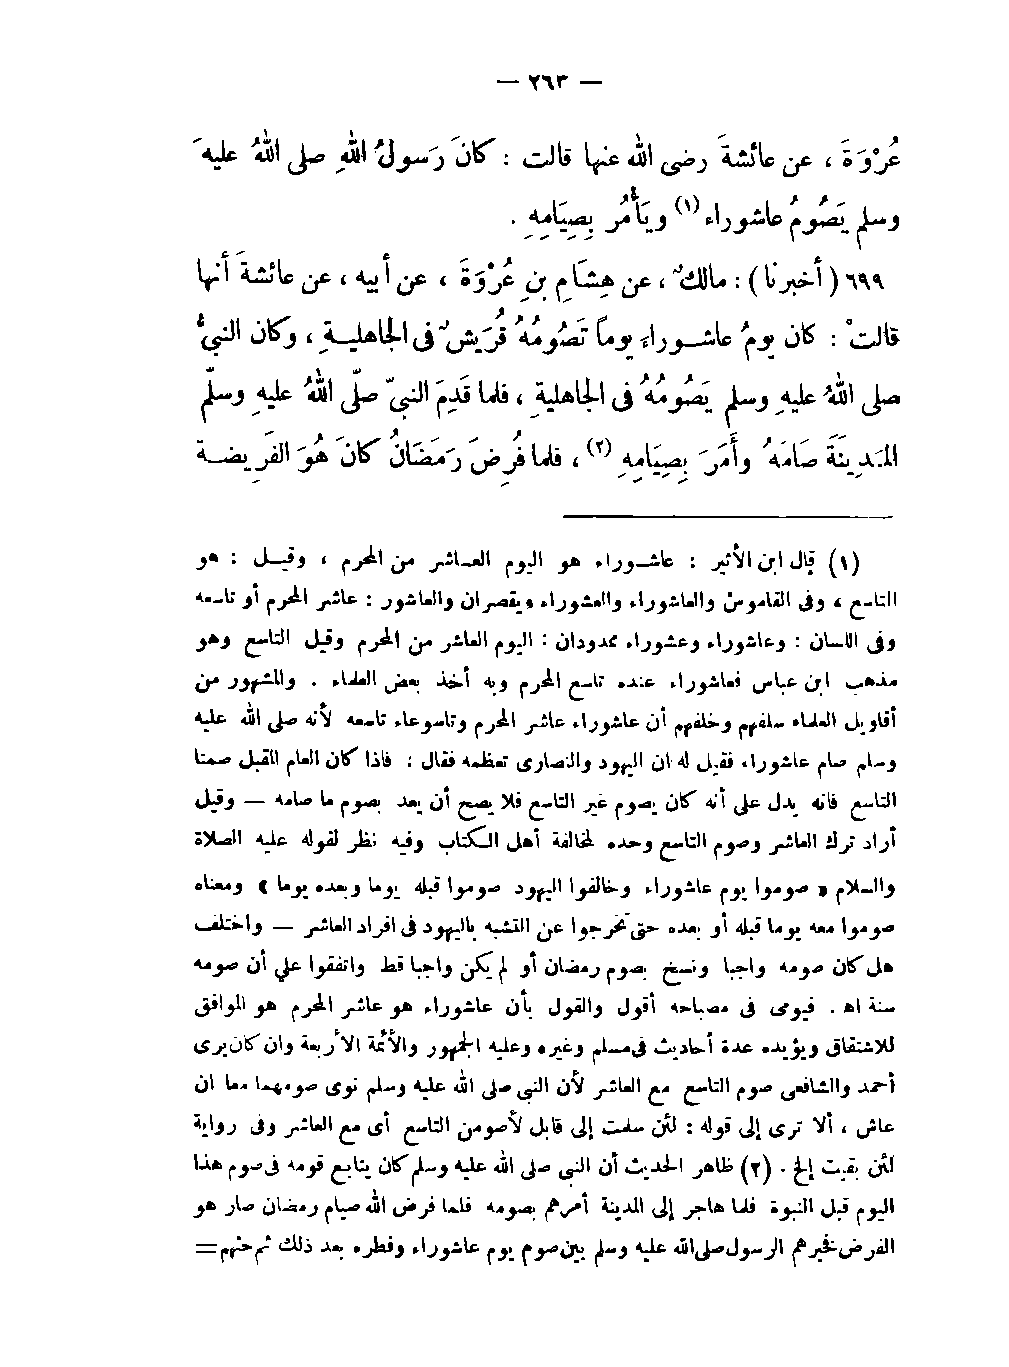 — ٢٦٣ —
عُرْوَةَ ، عن عائشةَ رضى الله عنها قالت : كانَ رَسولُ اللهِ صلى اللهُ عليهِ
وسلم يَصُومُ عاشوراء (١) ويَأْمُر بِصِيَامِهِ .
٦٩٩ ( أخبرنا ) : مالكٌ ، عن هِشَامِ بنِ عُرْوَةَ ، عن أبيه ، عن عائشةَ أنها
قالتْ : كان يومُ عاشوراءَ يوماً تَصُومُهُ قُرَيشٌ فى الجاهليةِ ، وكان النبىُّ
صلى اللهُ عليهِ وسلم يَصُومُهُ فى الجاهليةِ ، فلما قَدِمَ النبىّ صلّى اللهُ عليهِ وسلّم
المَدِينَةَ صَامَهُ وأَمَرَ بِصِيَامِهِ (٢) ، فلما فُرِضَ رَمَضَانُ كانَ هُوَ الفَرِيضَةَ
(١) قال ابن الأثير : عاشوراء هو اليوم العاشر من المحرم ، وقيل : هو
التاسع ، وفى القاموس والعاشوراء والعشوراء ويقصران والعاشور : عاشر المحرم أو تاسعه
وفى اللسان : وعاشوراء وعشوراء ممدودان : اليوم العاشر من المحرم وقيل التاسع وهو
مذهب ابن عباس فعاشوراء عنده تاسع المحرم وبه أخذ بعض العلماء . والمشهور من
أقاويل العلماء سلفهم وخلفهم أن عاشوراء عاشر المحرم وتاسوعاء تاسعه لأنه صلى الله عليه
وسلم صام عاشوراء فقيل له ان اليهود والنصارى تعظمه فقال : فاذا كان العام المقبل صمنا
التاسع فانه يدل على أنه كان يصوم غير التاسع فلا يصح أن يعد بصوم ما صامه — وقيل
أراد ترك العاشر وصوم التاسع وحده لمخالفة أهل الكتاب وفيه نظر لقوله عليه الصلاة
والسلام « صوموا يوم عاشوراء وخالفوا اليهود صوموا قبله يوما وبعده يوما » ومعناه
صوموا معه يوما قبله أو بعده حتى تخرجوا عن التشبه باليهود فى افراد العاشر — واختلف
هل كان صومه واجبا ونسخ بصوم رمضان أو لم يكن واجبا قط واتفقوا على أن صومه
سنة اه . فيومى فى مصباحه أقول والقول بأن عاشوراء هو عاشر المحرم هو الموافق
للاشتقاق ويؤيده عدة أحاديث فى مسلم وغيره وعليه الجمهور والأئمة الأربعة وان كان يرى
أحمد والشافعى صوم التاسع مع العاشر لأن النبى صلى الله عليه وسلم نوى صومهما معا ان
عاش ، ألا ترى إلى قوله : لئن سلمت إلى قابل لأصومن التاسع أى مع العاشر وفى رواية
لئن بقيت إلخ . (٢) ظاهر الحديث أن النبى صلى الله عليه وسلم كان يتابع قومه فى صوم هذا
اليوم قبل النبوة فلما هاجر إلى المدينة أمرهم بصومه فلما فرض الله صيام رمضان صار هو
الفرض فخيرهم الرسول صلى الله عليه وسلم بين صوم يوم عاشوراء وفطره بعد ذلك ثم حثهم =